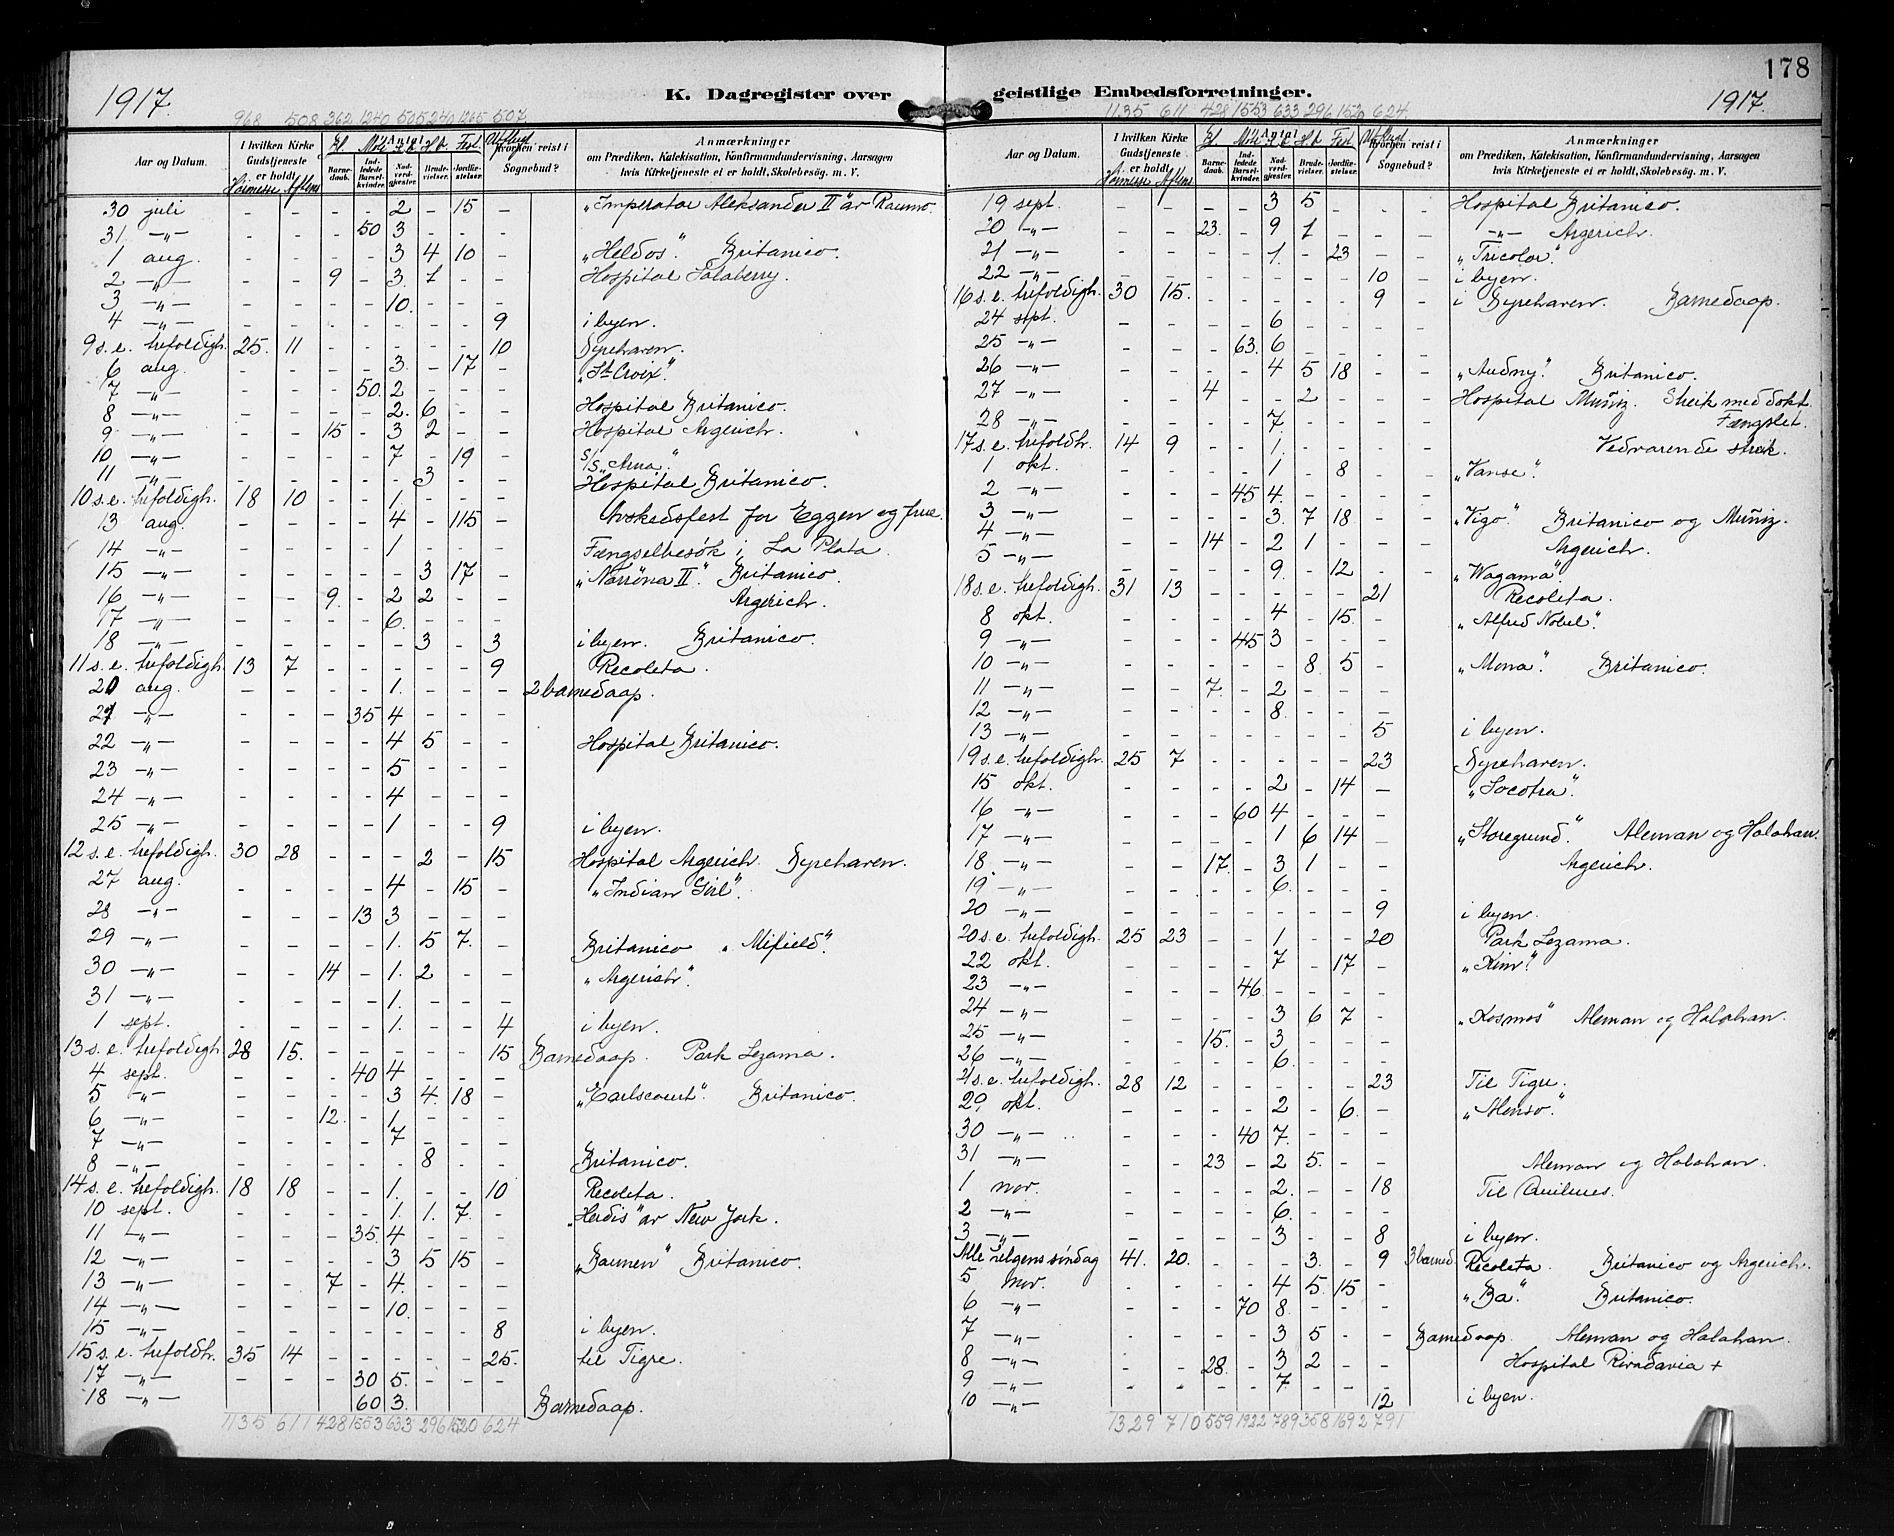 178
1917.
K. Dagregister over
geistlige Embedsforretninger.
1917.
968 508 362 1240 505 240 1265 507
1135 611 428 1553 633 296 1520 624
Aar og Datum.
I hvilken Kirke Gudstjeneste er holdt.
Høimesse Aftens
Barnedaab.
Indledede Barselkvinder.
Nadverdgjester.
Brudevielser.
Jordfæstelser.
Hvorhen reist i Sognebud?
Anmærkninger
om Prædiken, Katekisation, Konfirmandundervisning, Aarsagen
hvis Kirketjeneste ei er holdt, Skolebesøg. m. V.
30 juli - - - - 2 - 15 - "Imperator Aleksander II" av Raumo.
31 -"- - - - 50 3 - - -
1 aug. - - - - 3 4 10 - "Heldos". Britanico.
2 -"- - - 9 - 3. 1 - - Hospital Salaberry.
3 -"- - - - - 10. - - -
4 -"- - - - - - - - 9 i byen.
9 s. e. trefoldigh. 25. 11 - - - - - 10 Dyrehaven.
6 aug. - - - - 3. - 17 - "St Croix".
7 -"- - - - 50. 2 - - -
8 -"- - - - - 2. 6 - - Hospital Britanico.
9 -"- - - 15 - 3 2 - - Hospital Argerich.
10 -"- - - - - 7 - 19 - S/S "Arna".
11 -"- - - - - - 3 - - Hospital Britanico.
10 s. e. trefoldigh. 18 10 - - 1. - - -
13 aug. - - - - 4 - 115 - Avskedsfest for Eggen og frue.
14 -"- - - - - 1 - - - Fængselbesøk i La Plata.
15 -"- - - - - - 3 17 - "Norröna II". Britanico.
16 -"- - - 9. - 2 2 - - Argerich.
17 -"- - - - - 6. - - -
18 -"- - - - - - 3 - 3 i byen. Britanico.
11 s. e. trefoldigh. 13 7 - - - - - 9 Recoleta.
20 aug. - - - - 1. - - - 2 barnedaap.
21 -"- - - - 35 4 - - -
22 -"- - - - - 4 5 - - Hospital Britanico.
23 -"- - - - - 5 - - -
24 -"- - - - - 4 - - -
25 -"- - - - - 1 - - 9 i byen.
12 s. e. trefoldigh. 30 28 - - - 2 - 15 Hospital Argerich. Dyrehaven.
27 aug. - - - - 4 - 15 - "Indian Girl".
28 -"- - - - 13 3 - - -
29 -"- - - - - 1. 5 7. - Britanico "Mifield".
30 -"- - - 14 - 1. 2 - - "Argerich".
31 -"- - - - - 1. - - -
1 sept. - - - - 1. - - 4 i byen.
13 s. e. trefoldigh. 28 15. - - - - - 15 Barnedaap. Park Lezama.
4 sept. - - - 40 4 - - -
5 -"- - - - - 3 4. 18 - "Earlscourt". Britanico.
6 -"- - - 12. - 1. - - -
7 -"- - - - - 7 - - -
8 -"- - - - - - 8 - - Britanico.
14 s. e. trefoldigh. 18 18 - - 1. - - 10 Recoleta.
10 sept. - - - - 1. 1. 7. - "Herdis" av New York.
11 -"- - - - 35. 4 - - -
12 -"- - - - - 3 5 15 - "Baunen" Britanico.
13 -"- - - 7 - 4. - - -
14 -"- - - - - 10. - - -
15 -"- - - - - - - - 8 i byen.
15 s. e. trefoldh. 35 14 - - - - - 25. til Tigre.
17 -"- - - - 30 5. - - -
18 -"- 60 3. Barnedaap.
1135 611 428 1553 633 296 1520 624
Aar og Datum.
I hvilken Kirke Gudstjeneste er holdt.
Høimesse Aftens
Barnedaab.
Indledede Barselkvinder.
Nadverdgjester.
Brudevielser.
Jordfæstelser.
Hvorhen reist i Sognebud?
Anmærkninger
om Prædiken, Katekisation, Konfirmandundervisning, Aarsagen
hvis Kirketjeneste ei er holdt, Skolebesøg. m. V.
19 sept. - - - - 3 5 - - Hospital Britanico.
20 -"- - - 23. - 9 1 - - -"- Argerich.
21 -"- - - - - 1. - 23 - "Tricolor".
22 -"- - - - - - - - 10 i byen.
16 s. e. trefoldigh. 30 15. - - - - - 9 i Dyrehaven. Barnedaap.
24 sept. - - - - 6 - - -
25 -"- - - - 63. 6 - - -
26 -"- - - - - 4 5 18 - "Audny". Britanico.
27 -"- - - 4 - - 2 - - Hospital Muñiz. Streik med dokt.
28 -"- - - - - 7. - - - Fængslet.
17 s. e. trefoldh. 14 9 - - 1. - - - Vedvarende streik.
1 okt. - - - - 1 - 8 - "Vanse".
2 -"- - - - 45 4. - - -
3 -"- - - - - 3. 7 18. - "Vigo". Britanico og Muñiz.
4 -"- - - 14 - 2 1 - - Argerich.
5 -"- - - - - 9. - 12 - "Wagama".
18 s. e. trefoldigh. 31 13 - - - - - 21 Recoleta.
8 okt. - - - - 4 - 15. - "Alfred Nobel".
9 -"- - - - 45 3 - - -
10 -"- - - - - - 8 5 - "Mona". Britanico.
11 -"- - - 7. - 2 - - -
12 -"- - - - - 8. - - -
13 -"- - - - - - - - 5 i byen.
19 s. e. trefoldigh. 25 7 - - - - - 23 Dyrehaven.
15 okt. - - - - 2 - 14 - "Socotra".
16 -"- - - - 60 4 - - -
17 -"- - - - - 1 6 14 - "Storegrund". Aleman og Halahan.
18 -"- - - 17. - 3 1 - - Argerich.
19 -"- - - - - 6. - - -
20 -"- - - - - - - - 9 i byen.
20 s. e. trefoldigh. 25 23 - - 1 - - 20 Park Lezama.
22 okt. - - - - 7 - 17 - "Kim".
23 -"- - - - 46. - - - -
24 -"- - - - - 3 6 7 - "Kosmos" Aleman og Halahan.
25 -"- - - 15. - 3 - - -
26 -"- - - - - 6. - - -
21 s. e. trefoldigh. 28 12 - - - - - 23 Til Tigre.
29 okt. - - - - 2 - 6. - "Alonso".
30 -"- - - - 40 7. - - -
31 -"- - - 23 - 2 5. - - Aleman og Halahan.
1 nov. - - - - 2. - - 18 Til Quilmes.
2 -"- - - - - 6. - - -
3 -"- - - - - 3 - - 8 i byen.
Alle helgens søndag 41. 20. - - - 3. - 9 3 barned. Recoleta. Britanico og Argerich.
5 nov. - - - - 4 5. 15 - "Ba". Britanico.
6 -"- - - - 70 8. - - -
7 -"- - - - - 3 5 - - Barnedaap. Aleman og Halahan.
8 -"- - - 28. - 3 2 - - Hospital Rivadavia +
9 -"- - - - - 7 - - -
10 -"- 12 i byen.
1329 710 559 1922 789 358 1692 791